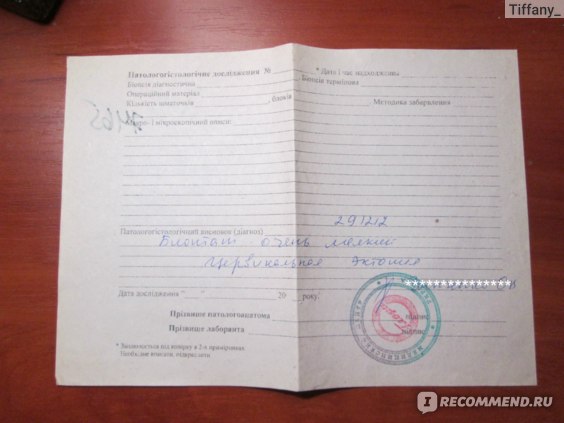 Tiffany_
Патологогістологічне дослідження № * Дата і час надходження
Біопсія діагностична Біопсія термінова
Операційний матеріал
Кількість шматочків , блоків Методика забарвлення
і мікроскопічний опис:
29/212
Патологогістологічний висновок (діагноз)
Биоптат очень мелкий
Цервикальная эктопия
Дата дослідження "___" 20 року.
підпис
Прізвище патологоанатома
підпис
Прізвище лаборанта
* Заповнюється під копірку в 2-х примірниках
Необхідне вписати, підкреслити
IRECOMMEND.RU